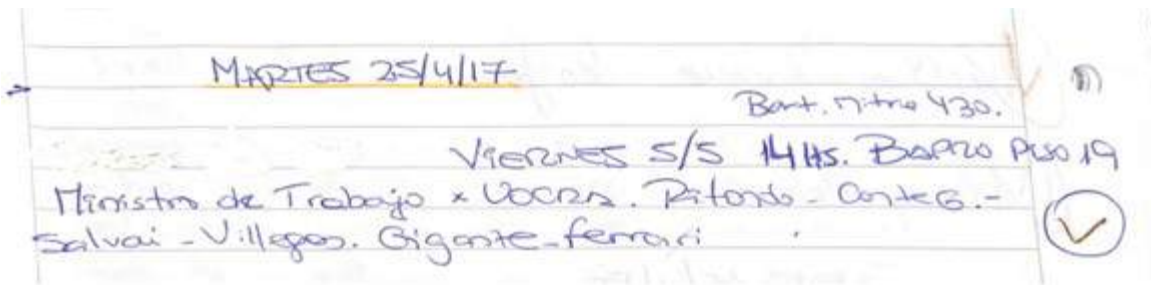 MARTES 25/4/17
Bart. Mitre 430.
VIERNES 5/5 14 HS. BAPRO PISO 19
Ministro de Trabajo x UOCRA. Ritondo - Conte G. -
Salvai - Villegas. Gigante - Ferrari